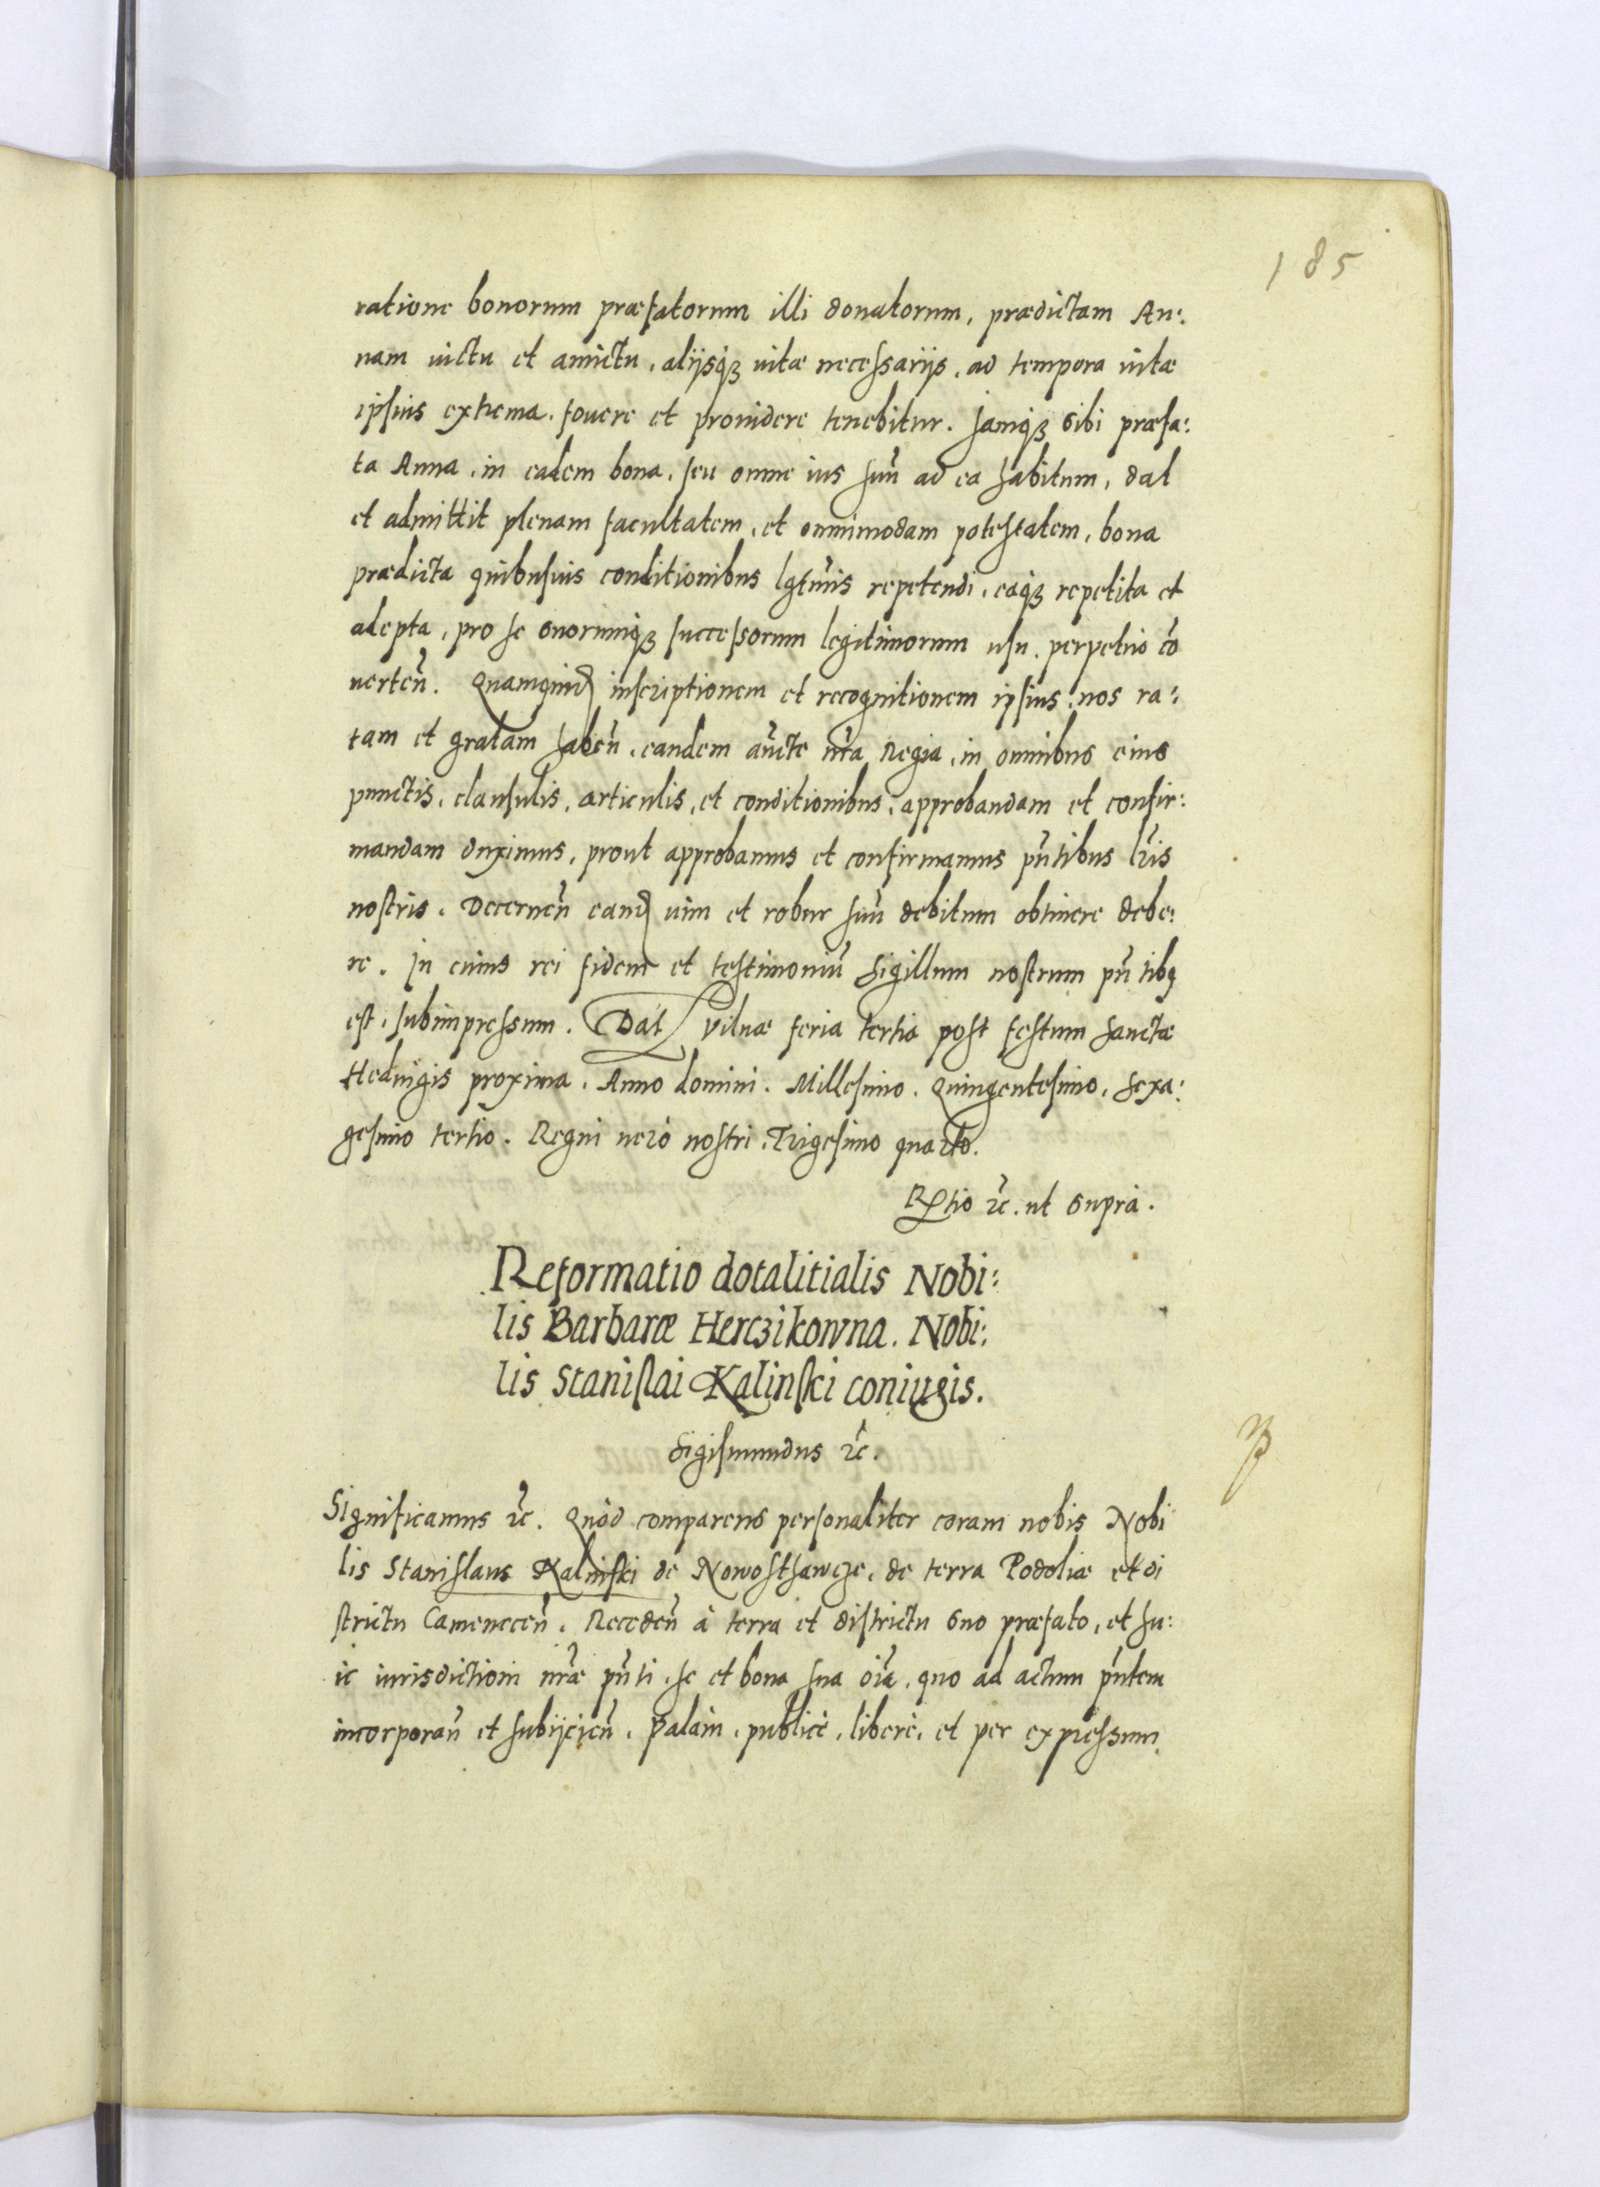 185
ratione bonorum præfatorum illi donatorum, prædictam An:
nam victu et amictu, alijsqꝫ vitæ necessarijs, ad tempora vitæ
ipsius extrema, fovere et providere tenebitur. Jamqꝫ sibi præfa:
ta Anna, in eadem bona, seu omne ius suũ ad ea habitum, dat
et admittit plenam facultatem, et omnimodam potestatem, bona
prædicta quibusvis conditionibus lgtimis repetendi, eaqꝫ repetita et
adepta, pro se suorumqꝫ successorum legitimorum usu, perpetuo cõ
verteñ. Quamquid inscriptionem et recognitionem ipsius, nos ra:
tam et gratam habeñ, eandem auc̃te nr̃a Regia, in omnibus eius
punctis, clausulis, articulis, et conditionibus, approbandam et confir:
mandam duximus, prout approbamus et confirmamus pñtibus lr̃is
nostris. Decerneñ eand vim et robur suũ debitum obtinere debe:
re. In cuius rei fidem et testimoniũ Sigillum nostrum pñtibꝫ
est, subimpressum. Dat Vilnæ feria tertia post festum Sanctæ
Hedvigis proxima. Anno domini. Millesimo. Quingentesimo, Sexa:
gesimo tertio. Regni verò nostri, Trigesimo quarto.
Rtio ꝛc. ut suprà.
Reformatio dotalitialis Nobi:
lis Barbaræ Herczikowna. Nobi:
lis Stanislai Kalinski coniugis.
Sigismundus ꝛc.
Significamus ꝛc. Quòd comparens personaliter coram nobis Nobi
lis Stanislaus Kalinski de Nowosthawcze, de terra Podoliæ et di
strictu Cameneceñ, Recedeñ à terra et districtu suo præfato, et hu:
ic iurisdictioni nr̃æ pñti, se et bona sua oĩa, quo ad actum pñtem
incorporañ et subijcieñ, Palàm, publicè, liberè, et per expressum